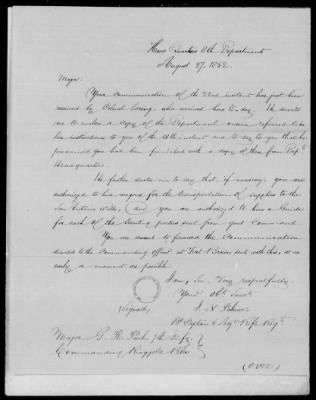 Head Quarters 8th Department
August 27, 1852.
Major,
Your communication of the 22nd instant has just been
received by Colonel Loring, who arrived here to day. He directs
me to enclose a copy of the Department orders referred to in
his instructions to you of the 14th instant and to say to you that he
presumed you had been furnished with a copy of them from Dep't
Headquarters.
He further directs me to say that, if necessary you are
authorized to hire wagons for the transportation of supplies to the
San Antonio Wells, and you are authorized to hire a Guide
for each of the scouting parties sent from your Command.
You are desired to forward the Communication
directed to the commanding officer at Fort sent with this, at as
early a moment as possible.
I am, Sir, Very respectfully,
Your Obt Servt
(Signed)
Bt Captain & Adjt Rifle Regt
Major G. R. Paul 7th Infy
Commanding Ringgold Bks
(Over)